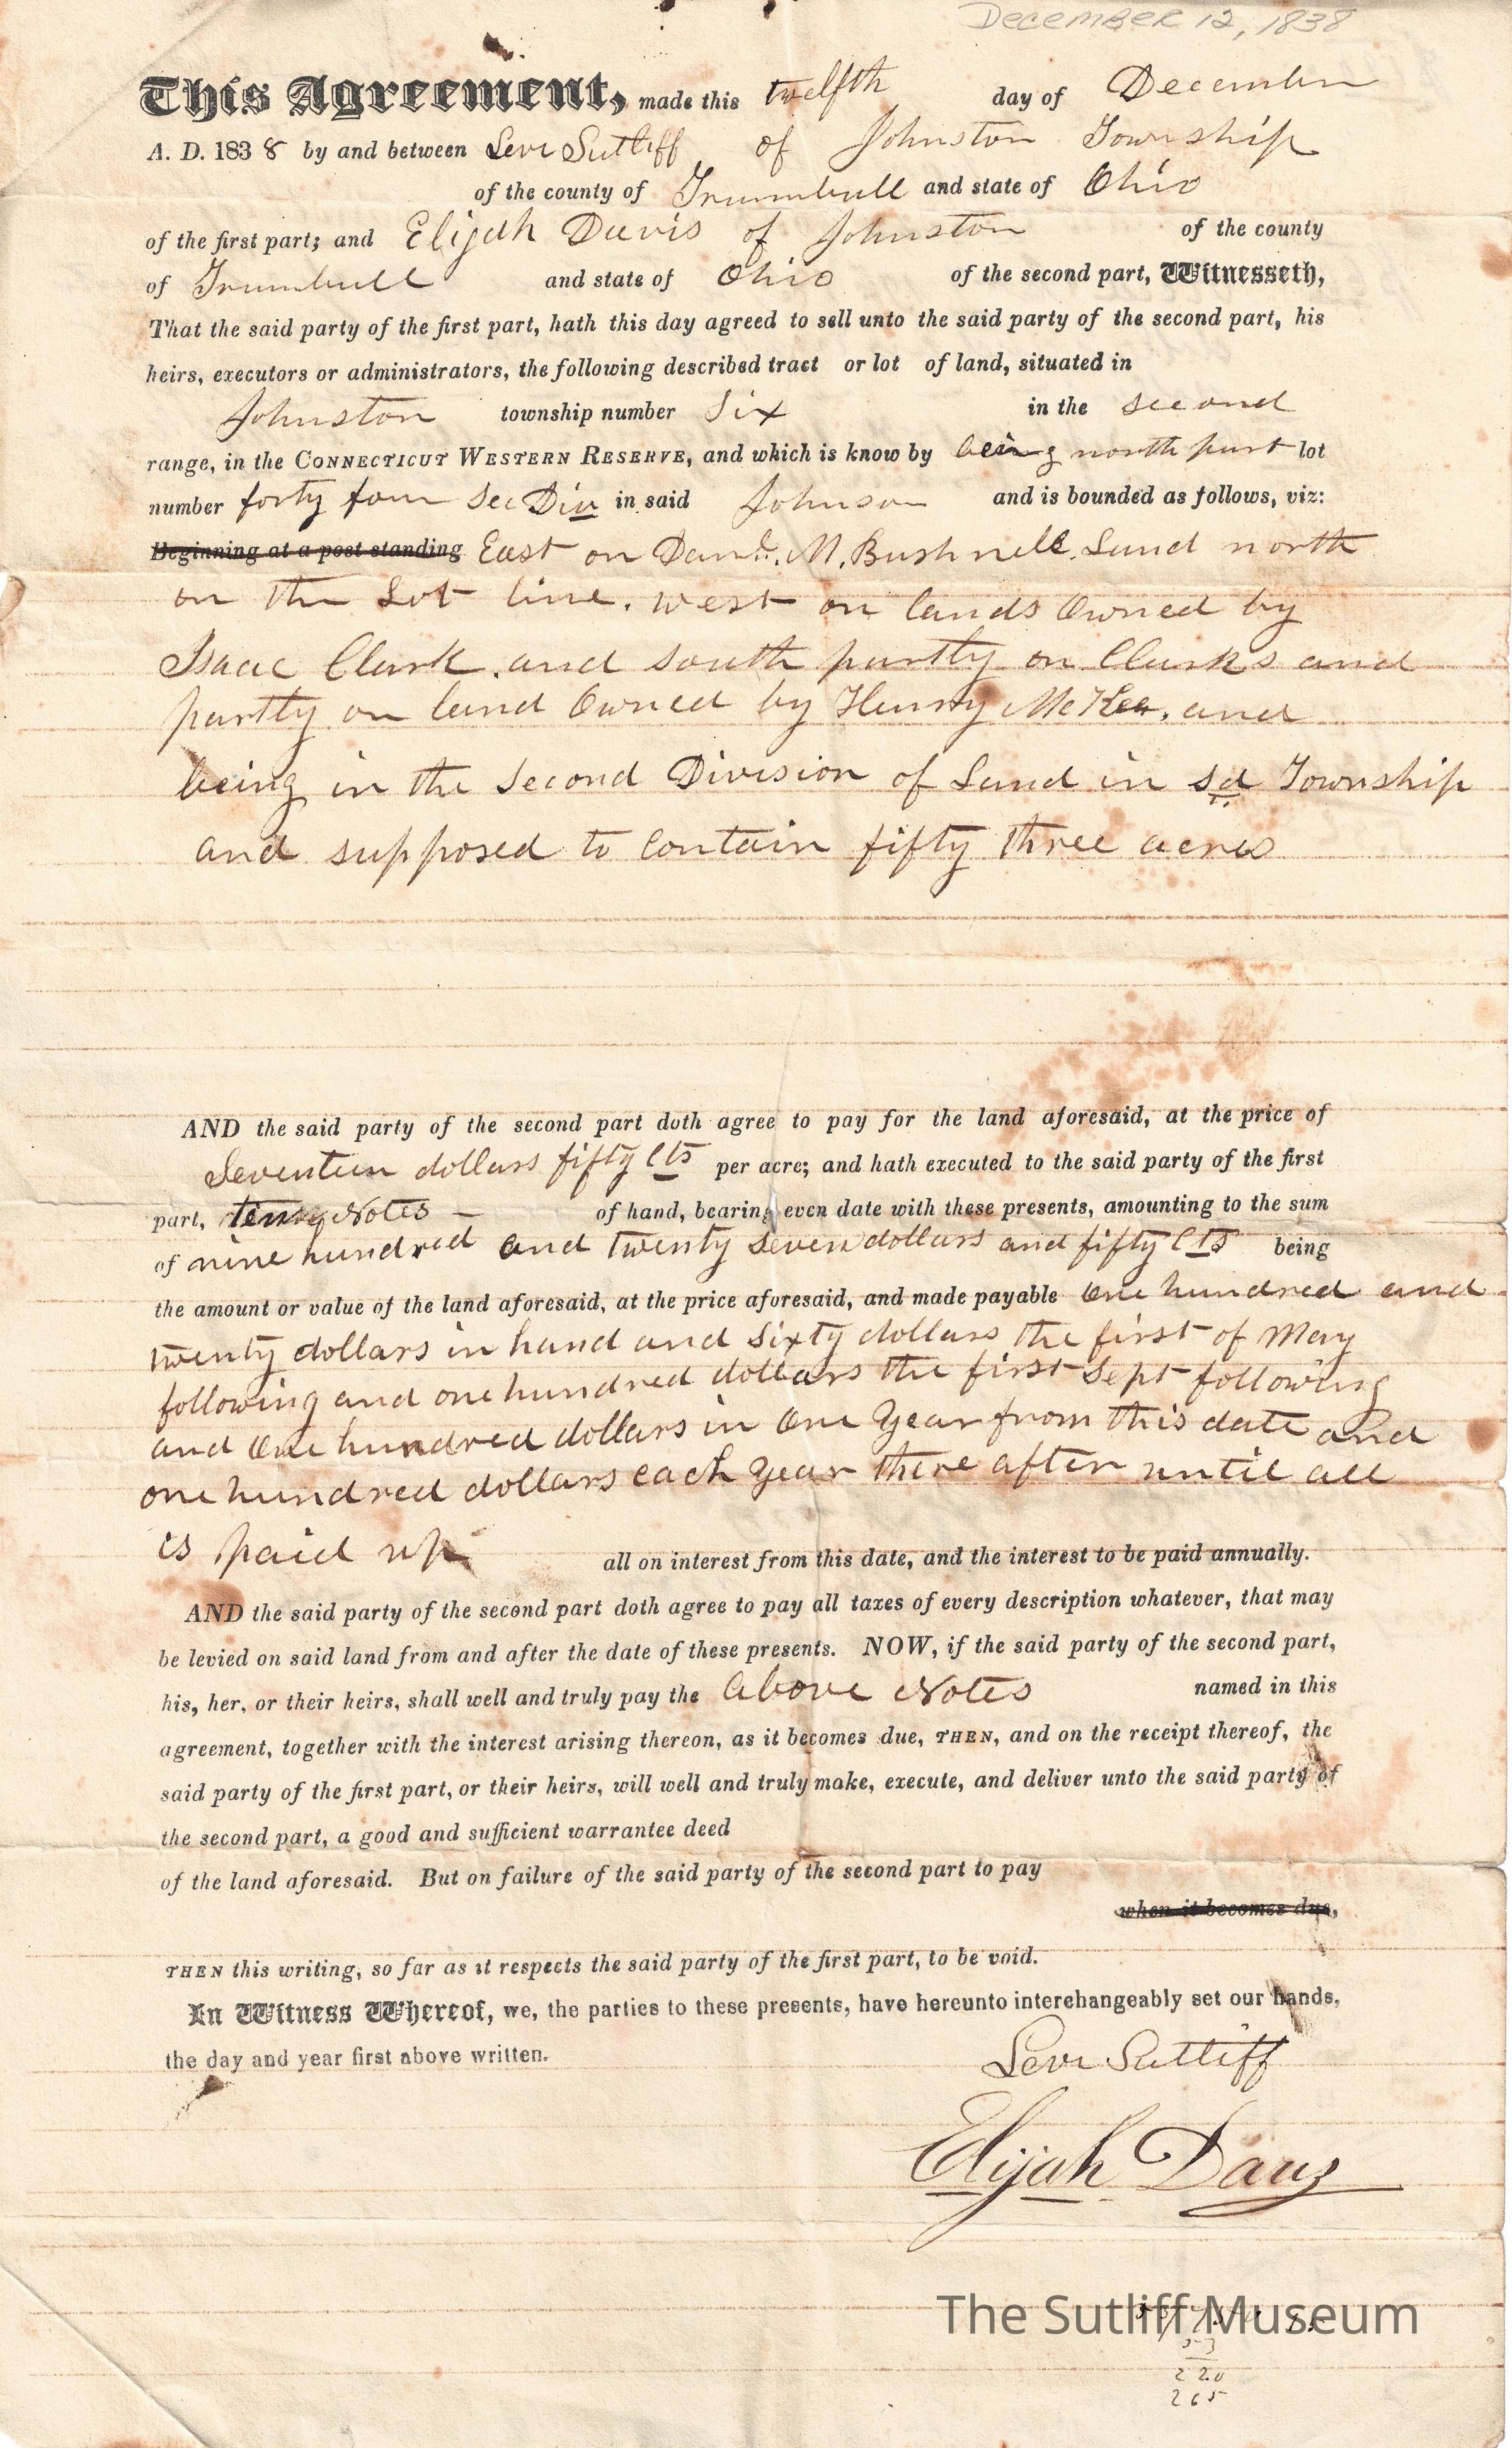 December 12, 1838
This Agreement, made this twelfth day of December
A. D. 1838 by and between Levi Sutliff of Johnston Township
of the county of Trumbull and state of Ohio
of the first part; and Elijah Davis of Johnston of the county
of Trumbull and state of Ohio of the second part, Witnesseth,
That the said party of the first part, hath this day agreed to sell unto the said party of the second part, his
heirs, executors or administrators, the following described tract or lot of land, situated in
Johnston township number Six in the second
range, in the Connecticut Western Reserve, and which is know by being north part lot
number forty four Sec Div in said Johnson and is bounded as follows, viz:
Beginning at a post standing East on Danl. M. Bushnell. Land north
on the Lot line. west on lands Owned by
Isaac Clark. and south partly on Clarks and
partly on land Owned by Henry McKee. and
being in the Second Division of Land in sd Township
and supposed to Contain fifty three acres
AND the said party of the second part doth agree to pay for the land aforesaid, at the price of
Seventeen dollars fifty Cts per acre; and hath executed to the said party of the first
part, Notes — of hand, bearing even date with these presents, amounting to the sum
of nine hundred and twenty seven dollars and fifty Cts being
the amount or value of the land aforesaid, at the price aforesaid, and made payable One hundred and
twenty dollars in hand and Sixty dollars the first of May
following and one hundred dollars the first Sept following
and One hundred dollars in One Year from this date and
one hundred dollars each Year there after until all
is paid up all on interest from this date, and the interest to be paid annually.
AND the said party of the second part doth agree to pay all taxes of every description whatever, that may
be levied on said land from and after the date of these presents. NOW, if the said party of the second part,
his, her, or their heirs, shall well and truly pay the above Notes named in this
agreement, together with the interest arising thereon, as it becomes due, THEN, and on the receipt thereof, the
said party of the first part, or their heirs, will well and truly make, execute, and deliver unto the said party of
the second part, a good and sufficient warrantee deed
of the land aforesaid. But on failure of the said party of the second part to pay
when it becomes due,
THEN this writing, so far as it respects the said party of the first part, to be void.
In Witness Whereof, we, the parties to these presents, have hereunto interchangeably set our hands,
the day and year first above written.
Levi Sutliff
Elijah Davis
The Sutliff Museum
53
220
265